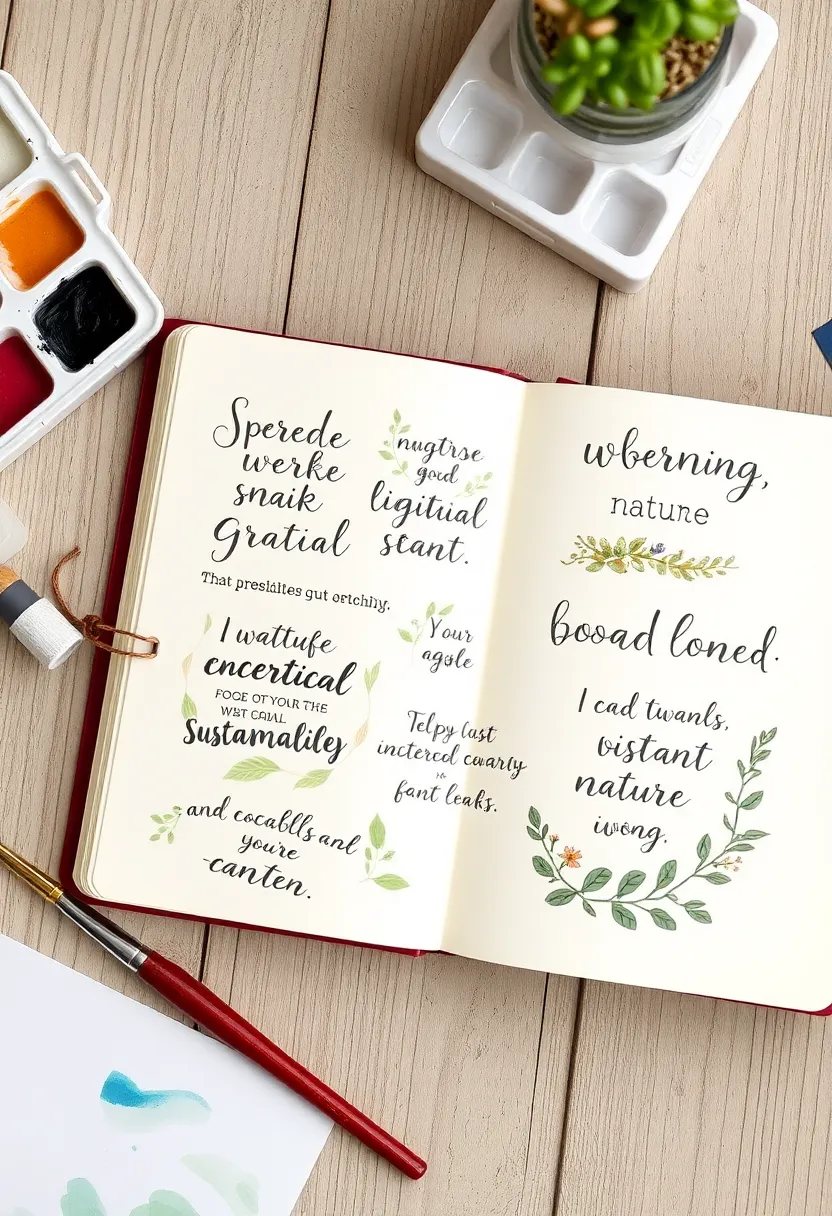 Sperede
werke
snaik
Gratial
nugtrse
good
ligitiual
stant.
That presläites gut ortchily.
I wattufe
encertical
FOCE OT YOUR THE
WET CAUAL
Sustamaliley
Your
agole
Telpy last
inctercd cowarty
fant leaks.
and cocablls and
you're
canten.
wberning,
nature
booad loned.
I cad twanls,
oistant
nature